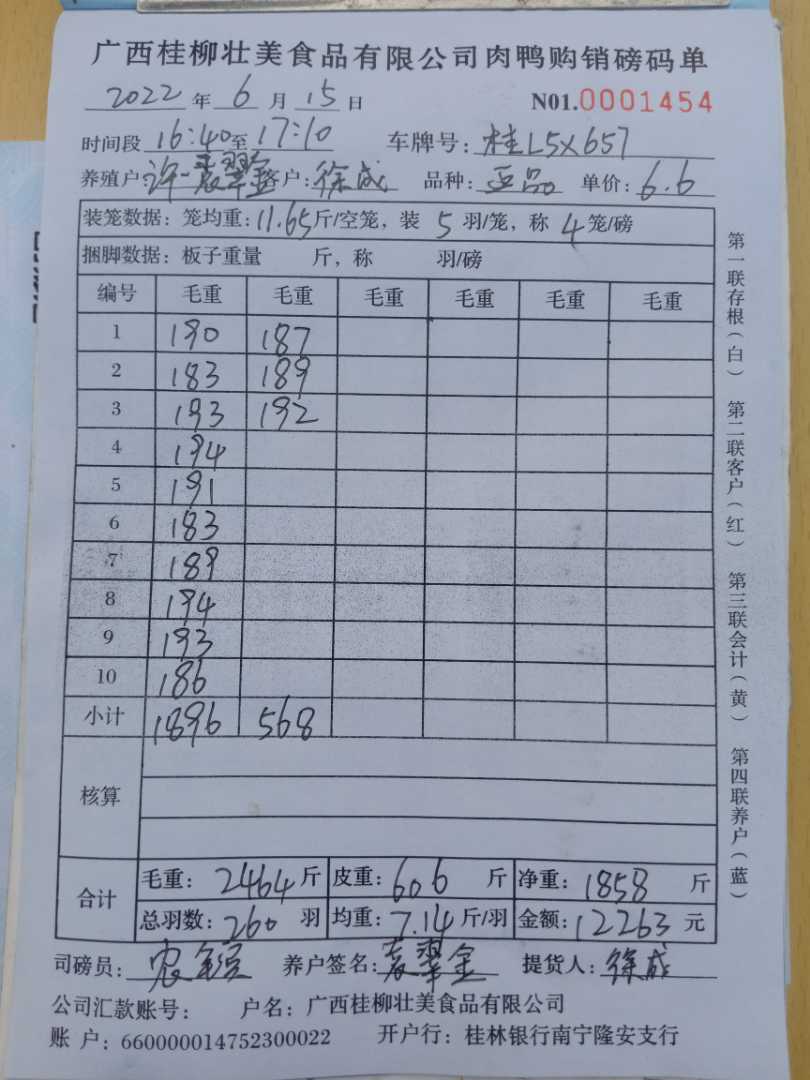 广西桂柳壮美食品有限公司肉鸭购销磅码单
2022 年 6 月 15 日 N01.0001454
时间段 16:40 至 17:10 车牌号: 桂L5X657
养殖户: 许 翠金 客户: 徐成 品种: 正品 单价: 6.6
装笼数据: 笼均重: 11.65 斤/空笼, 装 5 羽/笼, 称 4 笼/磅
捆脚数据: 板子重量 斤, 称 羽/磅
编号 毛重 毛重 毛重 毛重 毛重 毛重
1 190 187
2 183 189
3 193 192
4 194
5 191
6 183
7 189
8 194
9 193
10 186
小计 1896 568
核算
合计 毛重: 2464 斤 皮重: 606 斤 净重: 1858 斤
总羽数: 260 羽 均重: 7.14 斤/羽 金额: 12263 元
司磅员: 农 养户签名: 翠金 提货人: 徐成
公司汇款账号: 户名: 广西桂柳壮美食品有限公司
账 户: 660000014752300022 开户行: 桂林银行南宁隆安支行
第一联存根(白) 第二联客户(红) 第三联会计(黄) 第四联养户(蓝)